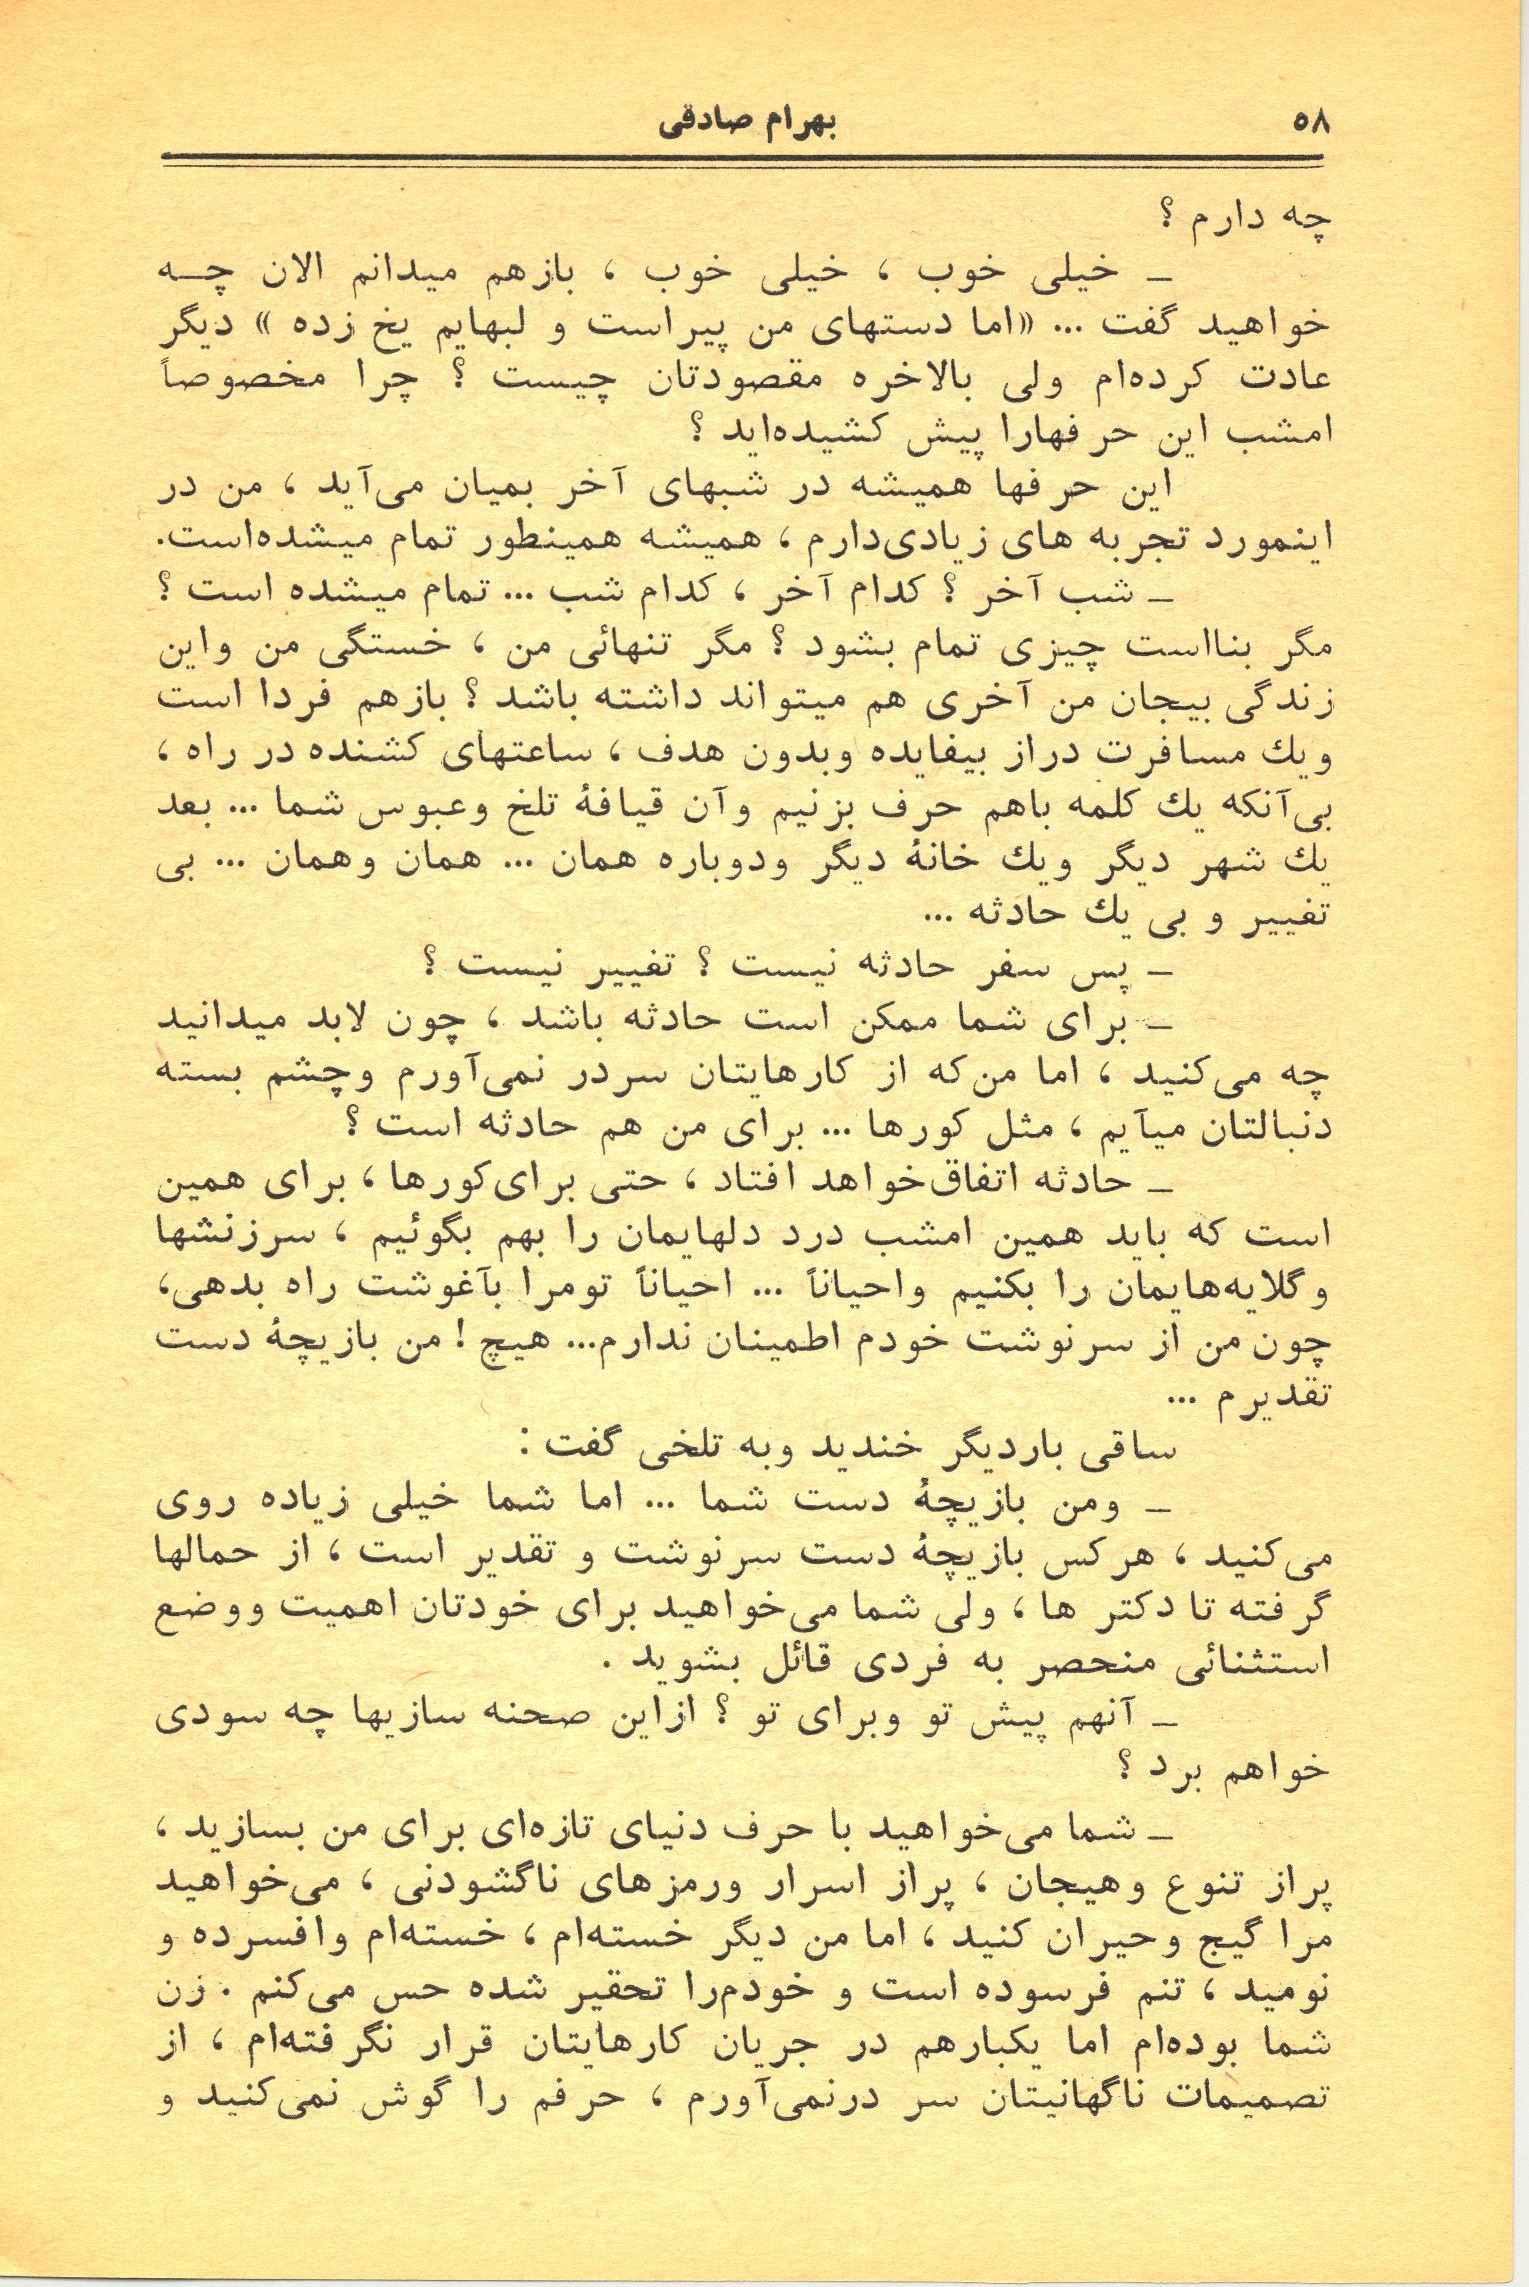 ۵۸
بهرام صادقی
چه دارم ؟
ـ خیلی خوب ، خیلی خوب ، بازهم میدانم الان چـه
خواهید گفت ... «اما دستهای من پیراست و لبهایم یخ زده » دیگر
عادت کرده‌ام ولی بالاخره مقصودتان چیست ؟ چرا مخصوصاً
امشب این حرفهارا پیش کشیده‌اید ؟
این حرفها همیشه در شبهای آخر بمیان می‌آید ، من در
اینمورد تجربه های زیادی‌دارم ، همیشه همینطور تمام میشده‌است.
ـ شب آخر ؟ کدام آخر ، کدام شب ... تمام میشده است ؟
مگر بنااست چیزی تمام بشود ؟ مگر تنهائی من ، خستگی من واین
زندگی بیجان من آخری هم میتواند داشته باشد ؟ بازهم فردا است
ویك مسافرت دراز بیفایده وبدون هدف ، ساعتهای کشنده در راه ،
بی‌آنکه یك کلمه باهم حرف بزنیم وآن قیافهٔ تلخ وعبوس شما ... بعد
یك شهر دیگر ویك خانهٔ دیگر ودوباره همان ... همان وهمان ... بی
تغییر و بی یك حادثه ...
ـ پس سفر حادثه نیست ؟ تغییر نیست ؟
ـ برای شما ممکن است حادثه باشد ، چون لابد میدانید
چه می‌کنید ، اما من‌که از کارهایتان سردر نمی‌آورم وچشم بسته
دنبالتان میآیم ، مثل کورها ... برای من هم حادثه است ؟
ـ حادثه اتفاق‌خواهد افتاد ، حتی برای‌کورها ، برای همین
است که باید همین امشب درد دلهایمان را بهم بگوئیم ، سرزنشها
وگلایه‌هایمان را بکنیم واحیاناً ... احیاناً تومرا بآغوشت راه بدهی،
چون من از سرنوشت خودم اطمینان ندارم... هیچ ! من بازیچهٔ دست
تقدیرم ...
ساقی باردیگر خندید وبه تلخی گفت :
ـ ومن بازیچهٔ دست شما ... اما شما خیلی زیاده روی
می‌کنید ، هرکس بازیچهٔ دست سرنوشت و تقدیر است ، از حمالها
گرفته تا دکتر ها ، ولی شما می‌خواهید برای خودتان اهمیت ووضع
استثنائی منحصر به فردی قائل بشوید .
ـ آنهم پیش تو وبرای تو ؟ ازاین صحنه سازیها چه سودی
خواهم برد ؟
ـ شما می‌خواهید با حرف دنیای تازه‌ای برای من بسازید ،
پراز تنوع وهیجان ، پراز اسرار ورمزهای ناگشودنی ، می‌خواهید
مرا گیج وحیران کنید ، اما من دیگر خسته‌ام ، خسته‌ام وافسرده و
نومید ، تنم فرسوده است و خودم‌را تحقیر شده حس می‌کنم . زن
شما بوده‌ام اما یکبارهم در جریان کارهایتان قرار نگرفته‌ام ، از
تصمیمات ناگهانیتان سر درنمی‌آورم ، حرفم را گوش نمی‌کنید و